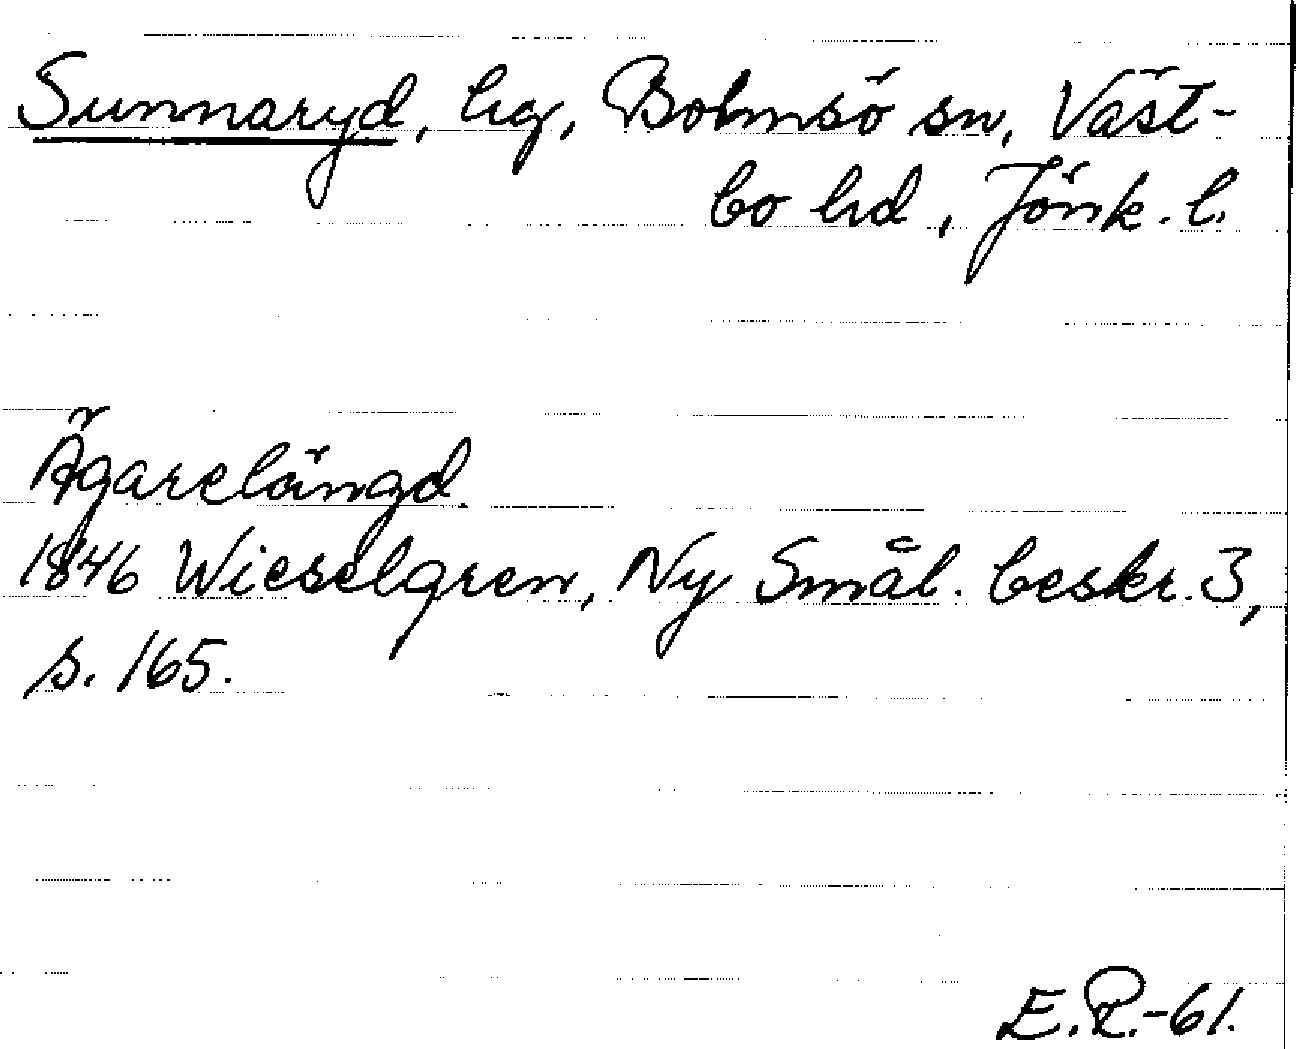 Sunnaryd, hg, Bolmsö sn, Väst-
bo hd, Jönk. l.
Ägarelängd.
1846 Wieselgren, Ny Smål. beskr. 3,
s. 165.
E.R.-61.